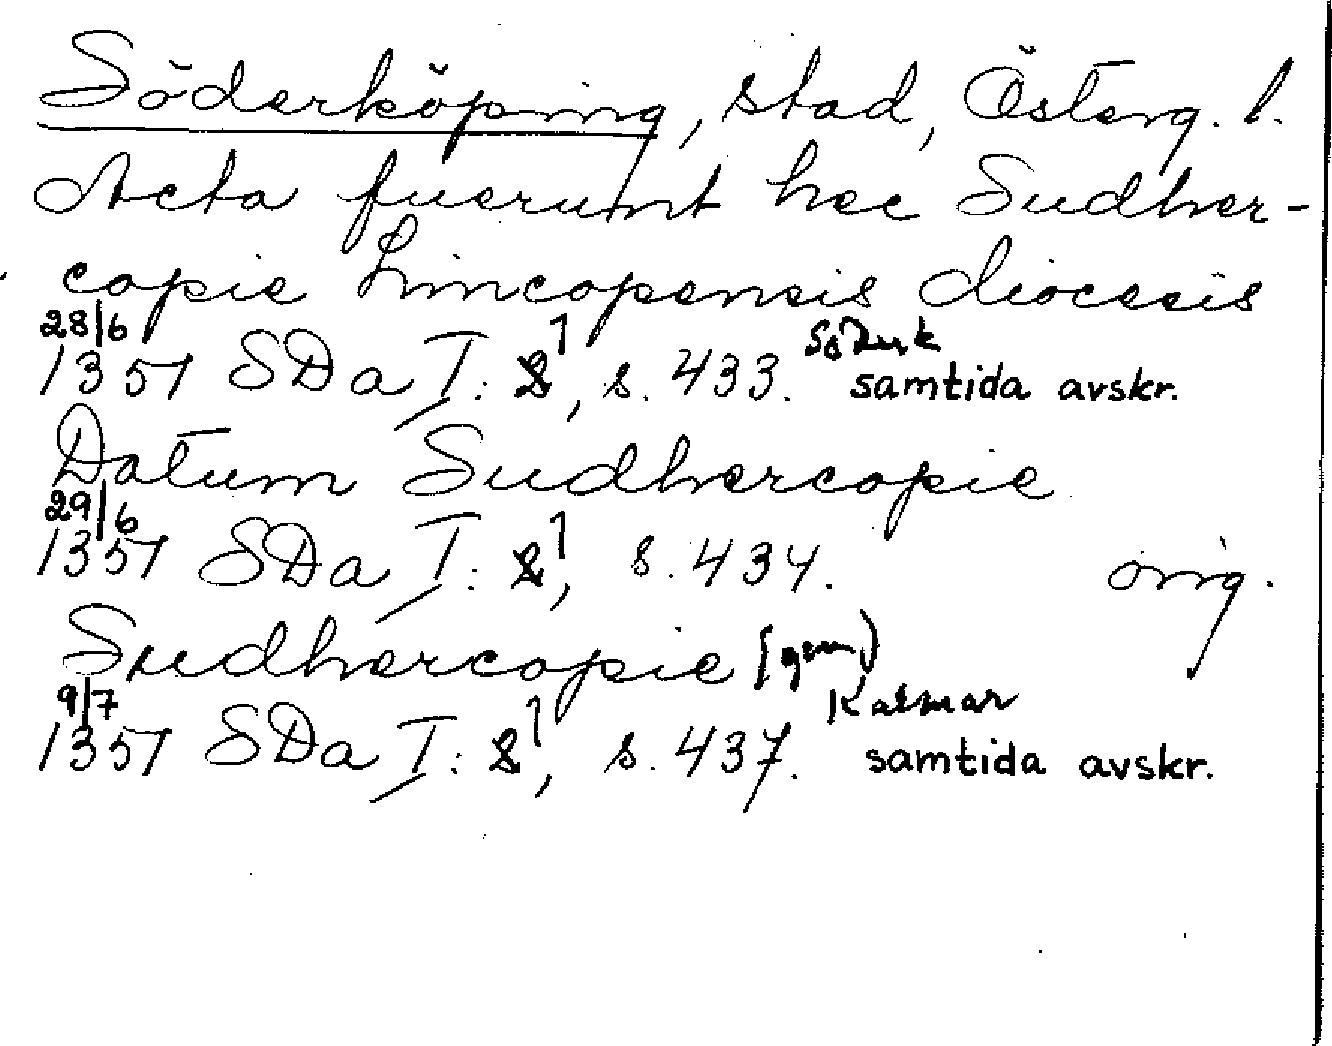 Söderköping, stad, Österg. l.
Acta fuerunt hec Sudher-
copie Lincopensis diocesis
28/6
1351 SDa I: 1, s. 433. Söderk samtida avskr.
Datum Sudhercopie
29/6
1351 SDa I: 1, s. 434. orig.
Sudhercopie (gen.)
9/7
1351 SDa I: 1, s. 437. Kalmar samtida avskr.